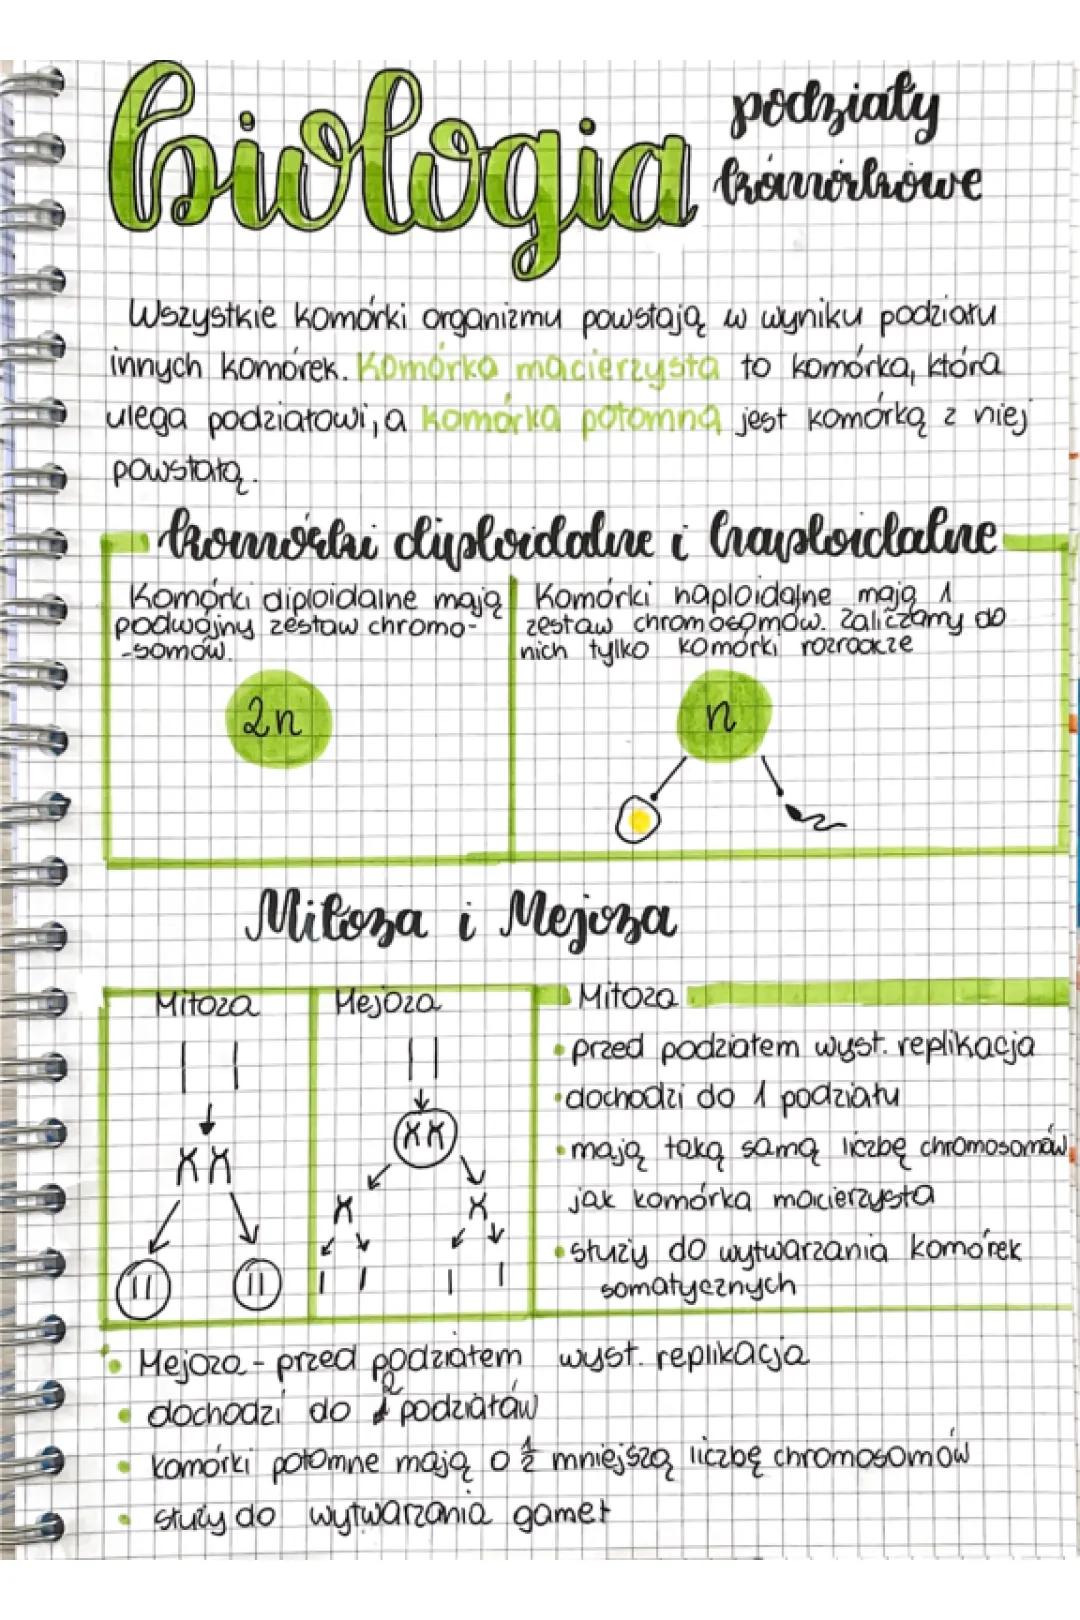 biologia
podziały
komórkowe
Wszystkie komórki organizmu powstają w wyniku podziału
innych komórek. Komórka macierzysta to komórka, która
ulega podziałowi, a komórka potomną jest komórką z niej
powstałą.
komórki diploidalne i haploidalne
Komórki diploidalne mają
podwójny zestaw chromo-
-somów.
2n
Komórki haploidalne mają 1
zestaw chromosomów. Zaliczamy do
nich tylko komórki rozrodcze
n
Mitoza i Mejoza
Mitoza
Mejoza
Mitoza
• przed podziałem wyst. replikacja
• dochodzi do 1 podziału
• mają taką samą liczbę chromosomów,
jak komórka macierzysta
• służy do wytwarzania komórek
somatycznych
• Mejoza - przed podziałem wyst. replikacja
• dochodzi do 2 podziałów
• komórki potomne mają o ½ mniejszą liczbę chromosomów
• służy do wytwarzania gamet